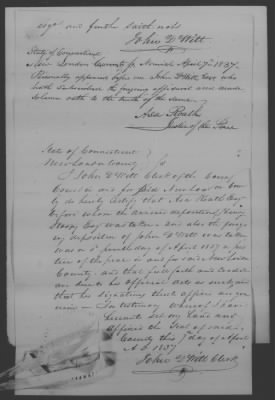 says and further saith not
John D Witt
State of Connecticut
New London County ss. Norwich April 7th 1837
Personally appeared before me John D Witt Esqr who
hath subscribed the foregoing affidavit and made
solemn oath to the truth of the same
Asa Roath
Justice of the Peace
State of Connecticut
New London County ss
I John D Witt Clerk of the County
Court in and for said New London Coun
ty do hereby Certify that Asa Roath Esqr
before whom the annexed deposition of
Story Esqr was taken and also the forego
ing deposition of John D Witt was taken
was on 5th April 1837 a jus
tice of the peace in and for said New London
County, and that full faith and credit
are due to his official acts as such, and
that his signature thereto appears
In testimony whereof I have
hereunto set my hand and
affixed the Seal of said
County this 7th day of April
A.D. 1837
John D Witt Clerk